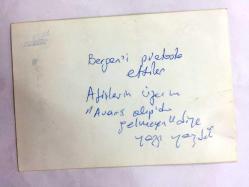 Bergen'i protesto
ettiler
Afişlerin üzerine
"Avans alıp da
gelmeyen" diye
yazı yazıldı